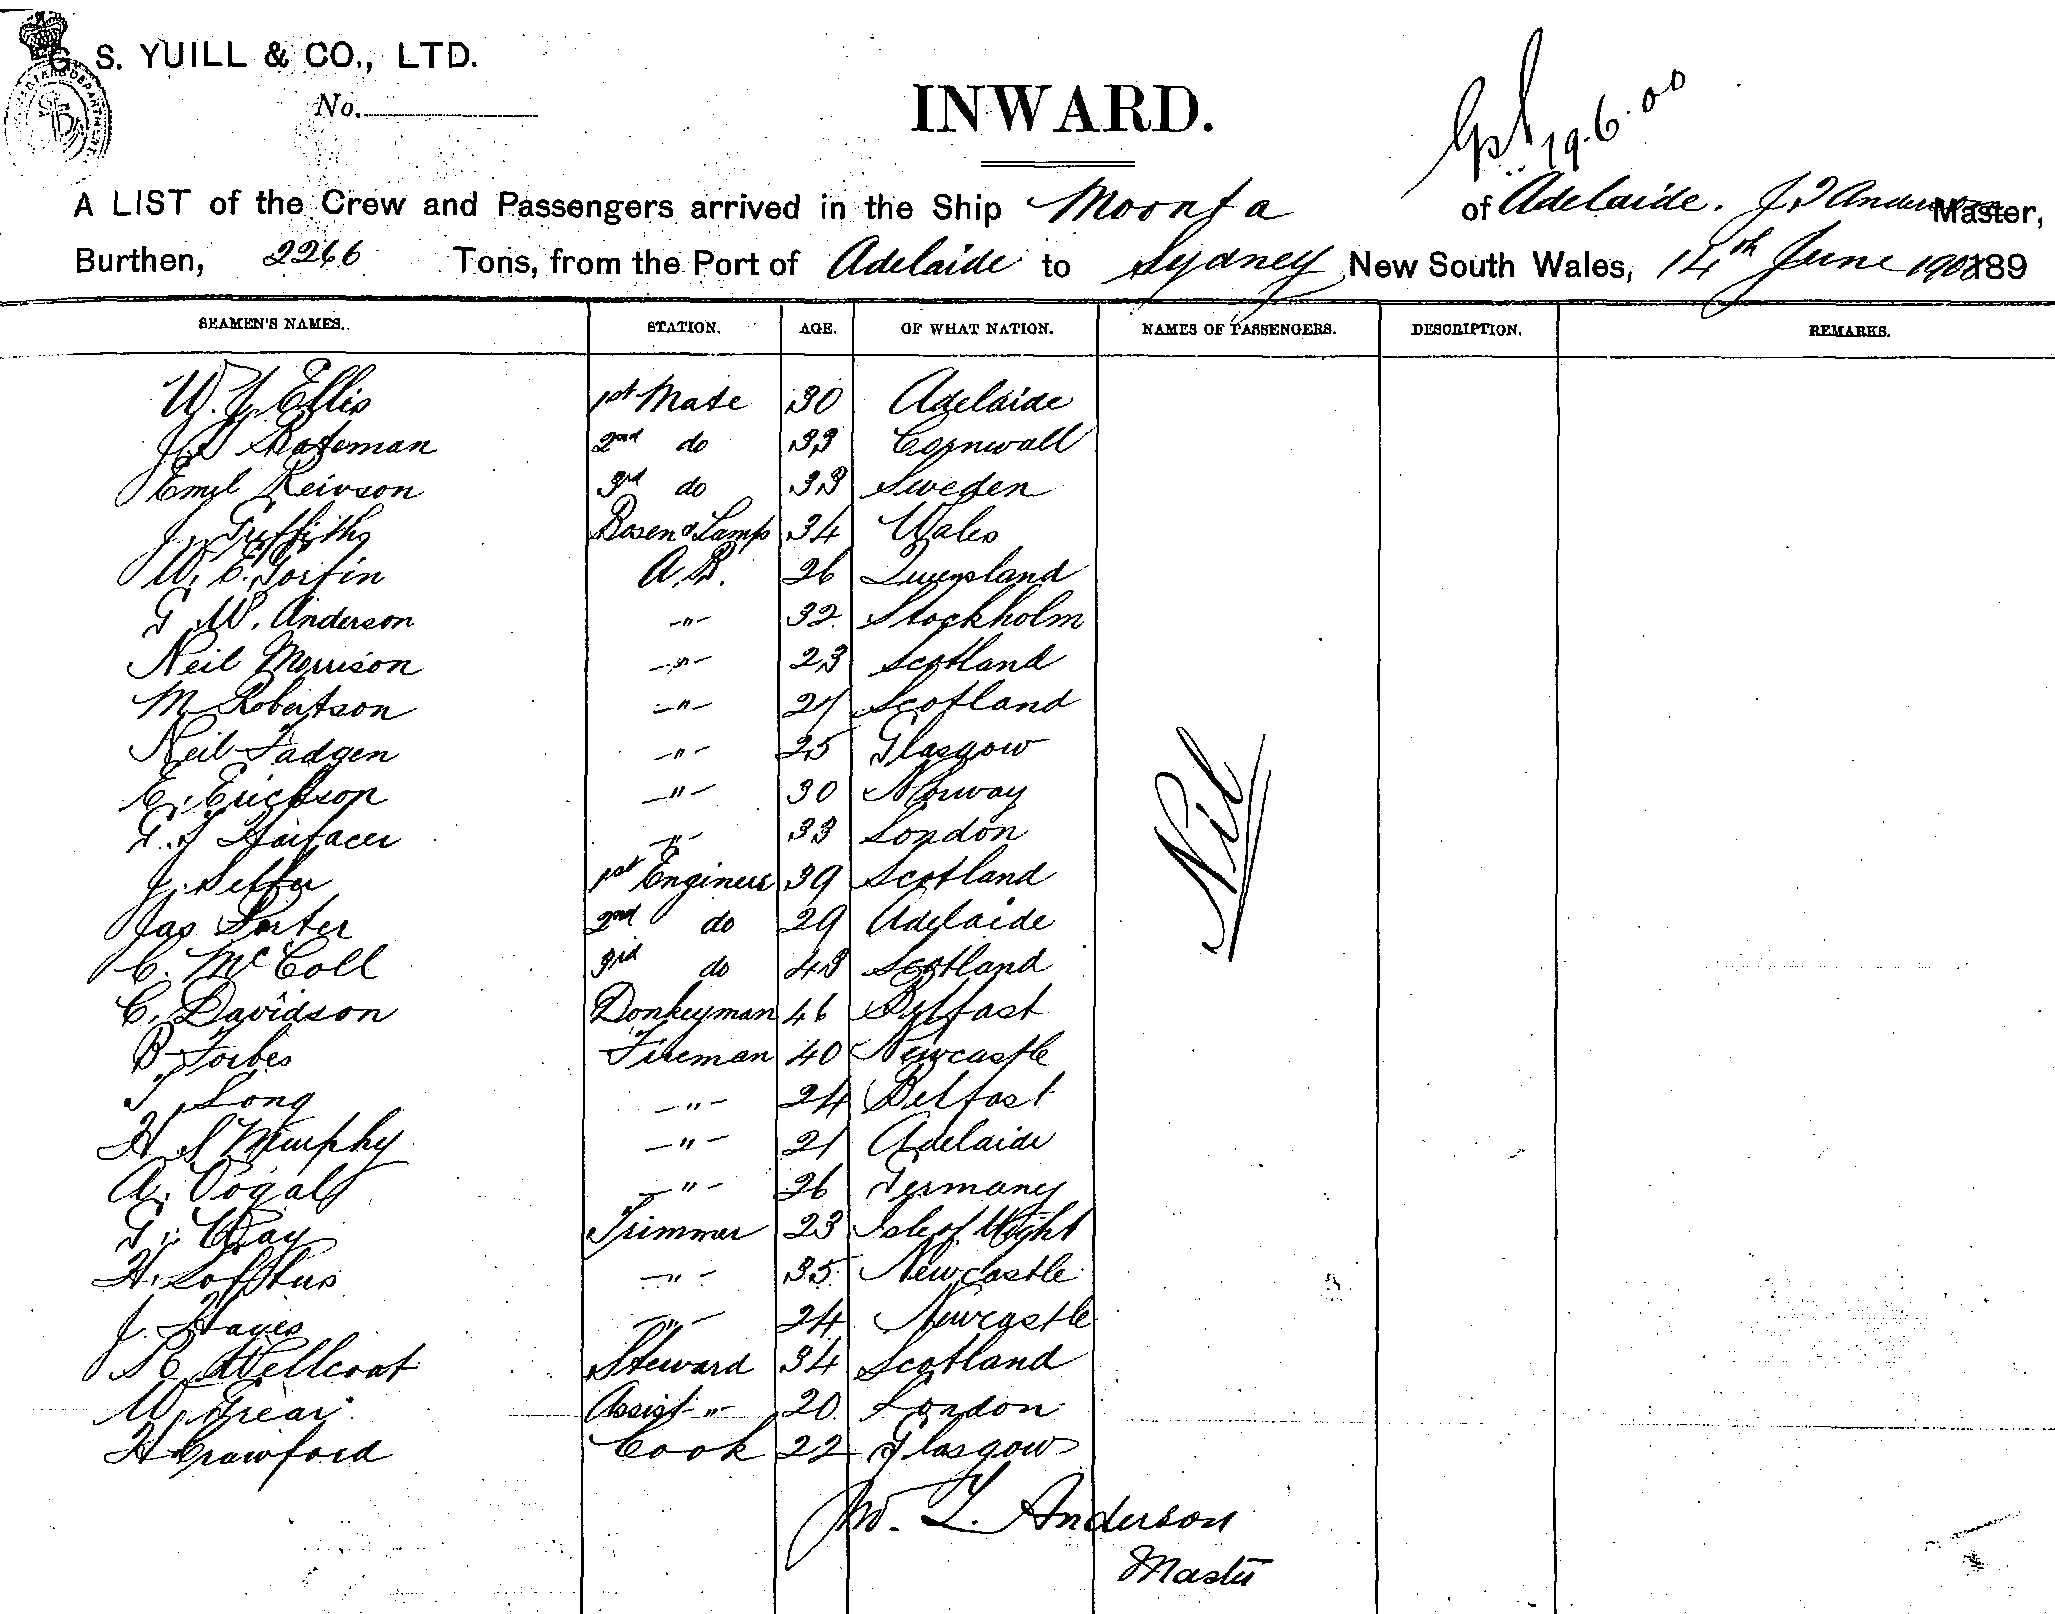 G. S. YUILL & CO., LTD.
No.
INWARD.
19.6.00
A LIST of the Crew and Passengers arrived in the Ship Moonta of Adelaide. Master,
Burthen, 2266 Tons, from the Port of Adelaide to Sydney, New South Wales, 14th June 1900 189
SEAMEN'S NAMES. STATION. AGE. OF WHAT NATION. NAMES OF PASSENGERS. DESCRIPTION. REMARKS.
W. J. Ellis 1st Mate 30 Adelaide
Bateman 2nd do 33 Cornwall
Emyl 3rd do 33 Sweden
J. Griffiths Bosen & Lamps 34 Wales
W. C. A.B. 26 Queensland
G. W. Anderson -"- 32 Stockholm
Neil Morrison -"- 23 Scotland
M Robertson -"- Scotland
Neil Fadgen -"- 25 Glasgow
E. Erickson -"- 30 Norway
-"- 33 London
J. 1st Engineer 39 Scotland
Jas Porter 2nd do 29 Adelaide
C. McColl 3rd do 43 Scotland
C. Davidson Donkeyman 46 Belfast
B Forbes Fireman 40 Newcastle
T. Long -"- 24 Belfast
H S Murphy -"- 21 Adelaide
A. -"- 26 Germany
G. Trimmer 23 Isle of Wight
H. Lofftus -"- 35 Newcastle
J. Hayes -"- 24 Newcastle
Wellcoat Steward 34 Scotland
W. Assist -"- 20 London
H Crawford Cook 22 Glasgow
Nil
Jno. L. Anderson
Master